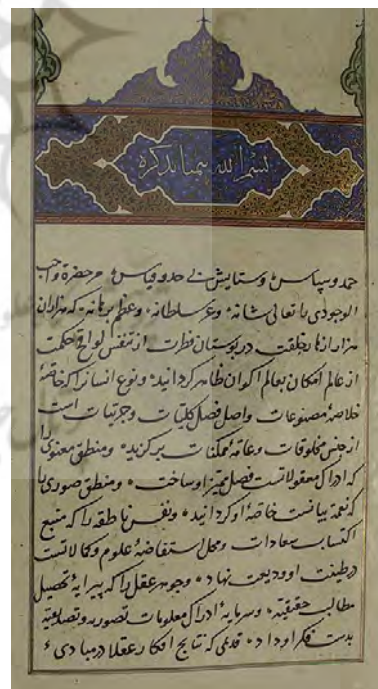 بسم الله
حمد و سپاس و ستایش بی حد و قیاس مر حضرة واجب
الوجودی را تعالی شانه و عز سلطانه و عظم برهانه که هزاران
هزار ازهار خلقت در بوستان فطرت از تنفس لواقح حکمت
از عالم امکان بعالم اکوان ظاهر کردانید و نوع انسانرا که خاصهٔ
خلاصهٔ مصنوعات و اصل فصل کلیات و جزئیات است
از جنس مخلوقات و عامهٔ ممکنات برکزید و منطق معنوی را
که ادراک معقولاتست فصل ممیز او ساخت و منطق صوری را
که نعمة بیانست خاصهٔ او کردانید و نفس ناطقه را که منبع
اکتساب سعادات و محل استفاضهٔ علوم و کمالاتست
در طینت او ودیعت نهاد و جوهر عقل را که پیرایهٔ تحصیل
مطالب حقیقیه و سرمایهٔ ادراک معلومات تصوریه و تصدیقیه
بدست فکر او داد قادری که نتایج افکار عقلا در مبادی